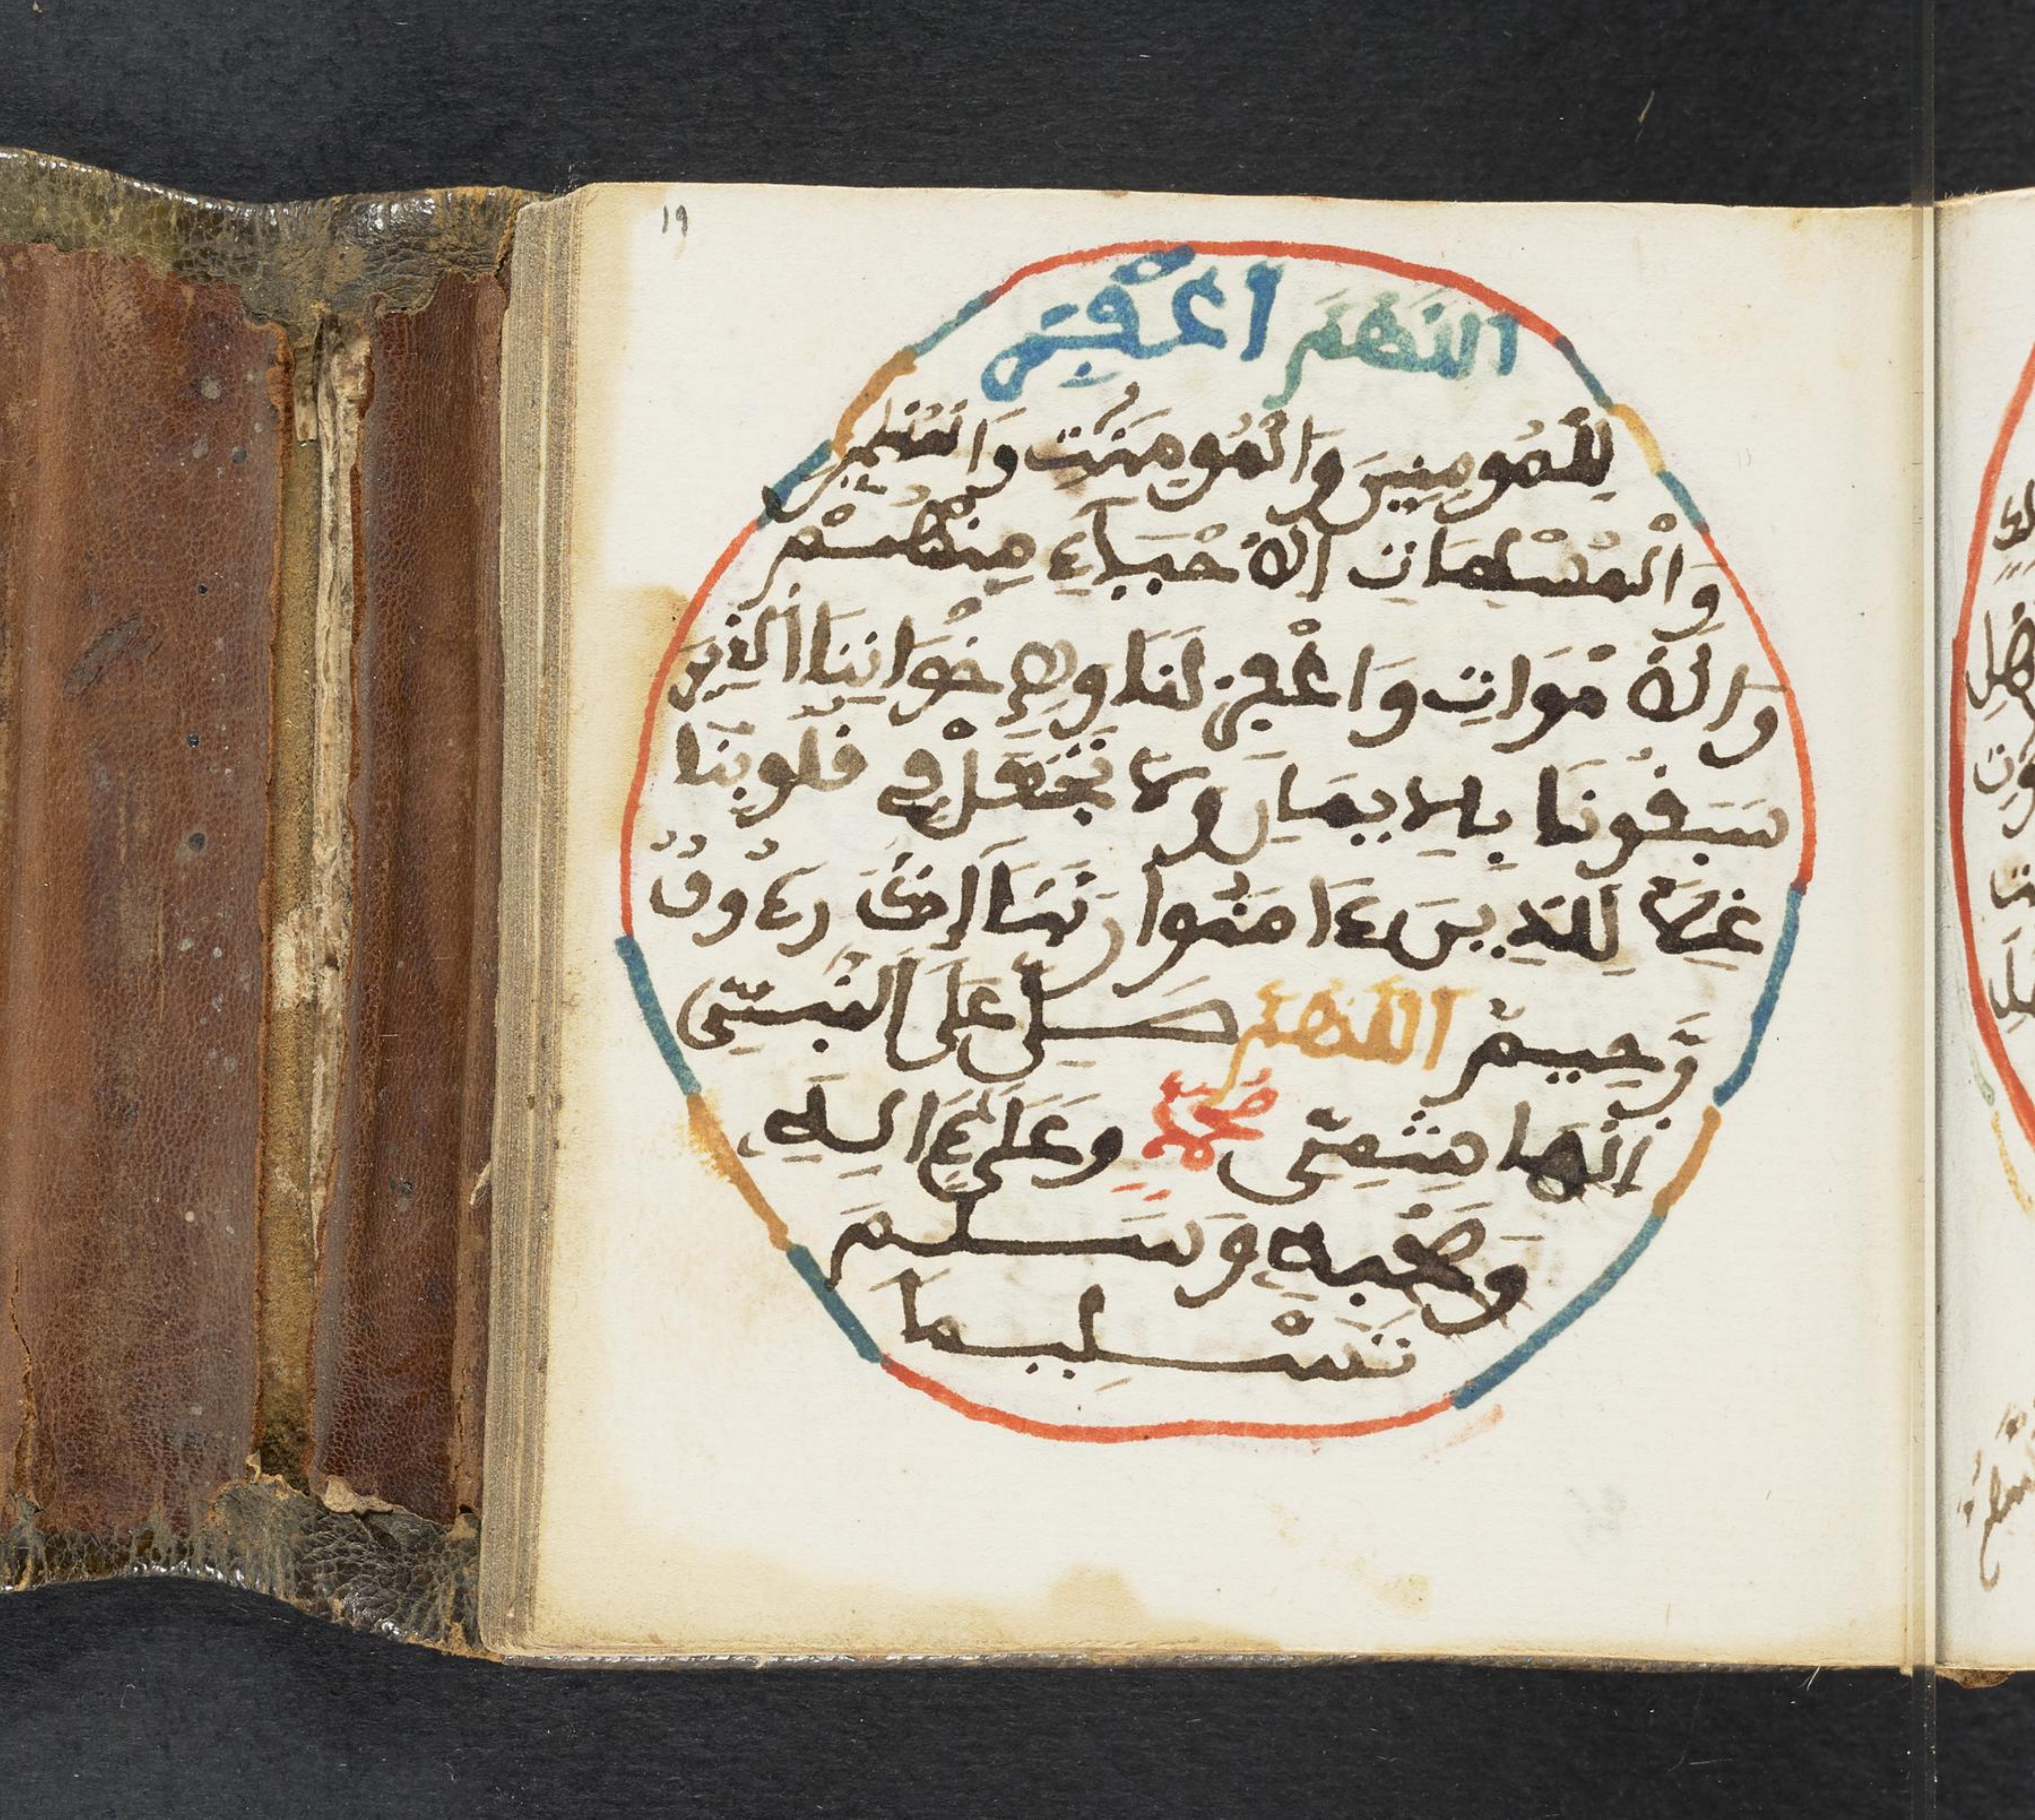 ١٩
اللهم اغفر
للمومنين والمومنت والمسلمين
والمسلمات الاحياء منهم
والاموات واغفر لنا ولإخواننا الذين
سبقونا بالايمان ولا تجعل في قلوبنا
غلا للذين ءامنوا ربنا إنك رءوف
رحيم اللهم صل على النبي
الهاشمي محمد وعلى ءاله
وصحبه وسلم
تسليما